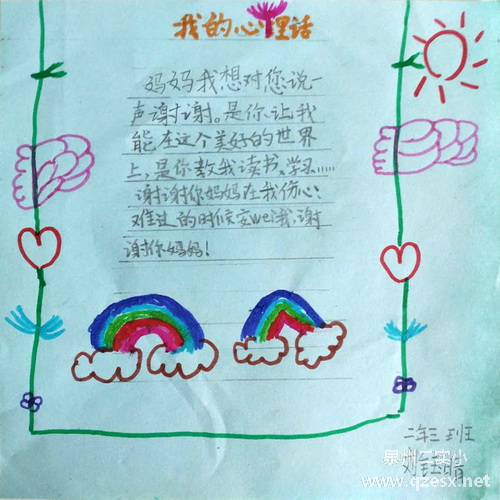 我的心理话
妈妈我想对您说一
声谢谢。是你让我
能在这个美好的世界
上,是你教我读书、学习……
谢谢你妈妈在我伤心、
难过的时候安wei我.谢
谢你妈妈!
二年三班
泉州二实小
刘钰晴
www.qzesx.net